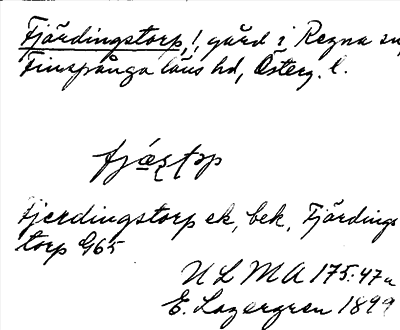 Fjärdingstorp, !, gård i Regna sn,
Finspånga läns hd, Österg. l.
fjæștǫp
Fjerdingstorp ek, bek, Fjärdings
torp G65
U L M A 175:47a
E. Lagergren 1899